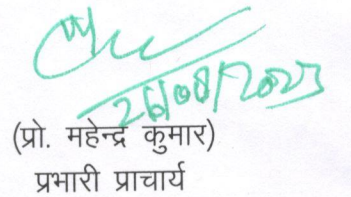 26/08/2023
(प्रो. महेन्द्र कुमार)
प्रभारी प्राचार्य